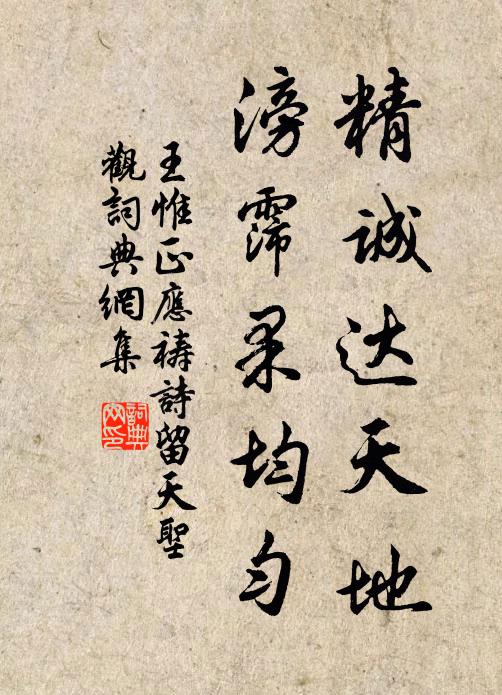 精诚达天地
滂霈果均匀
王惟正應禱詩留天聖
觀詞典網集
詞典
网印